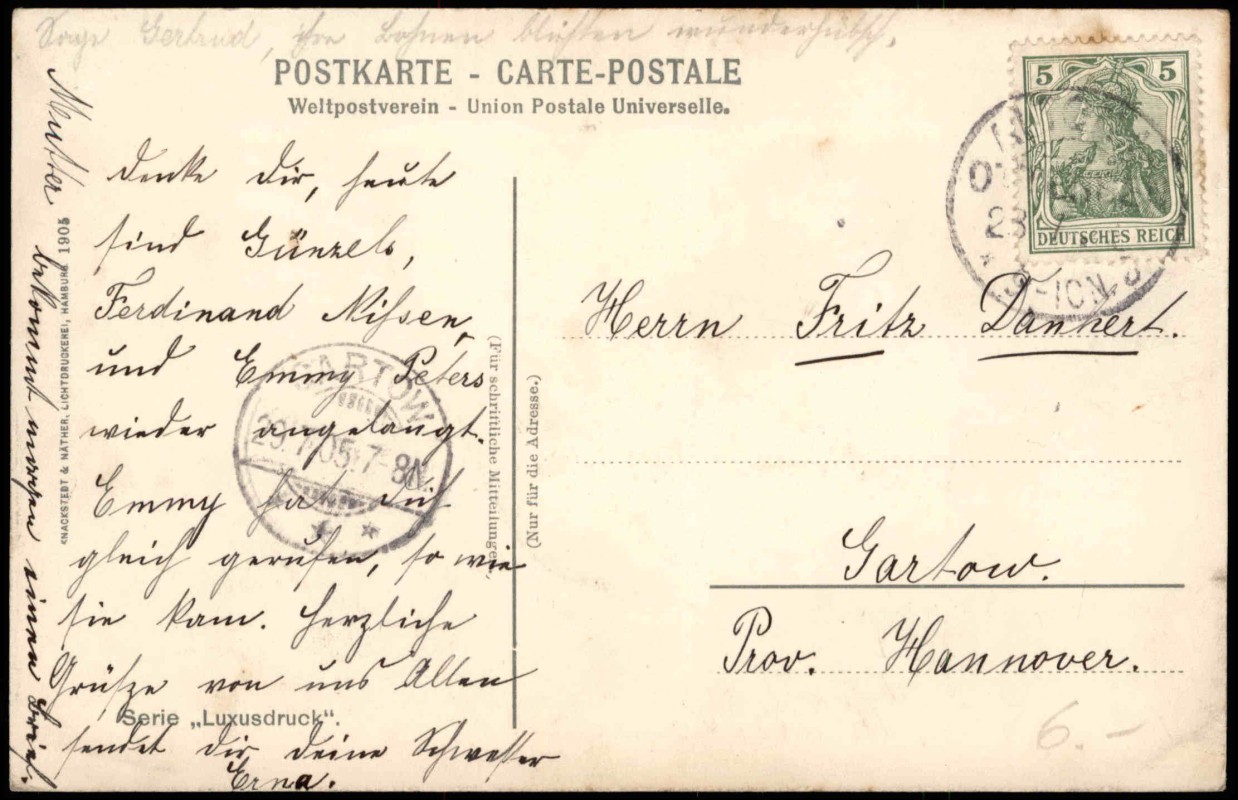 Sage Gertrud, ihre Bohnen blühten wunderhübsch.
POSTKARTE - CARTE-POSTALE
Weltpostverein - Union Postale Universelle.
5 5
DEUTSCHES REICH
denke dir, heute
sind Günzels,
Ferdinand Nißsen,
und Emmy Peters
wieder angelangt.
Emmy hat dich
gleich gerufen, so wie
sie kam. Herzliche
Grüße von uns Allen
sendet dir deine Schwester
Erna.
Mutter bekommt morgen einen Brief.
KNACKSTEDT & NÄTHER, LICHTDRUCKEREI, HAMBURG 1905
(Für schriftliche Mitteilungen.)
(Nur für die Adresse.)
GARTOW
29. 7. 05. 7-8N.
Herrn Fritz Dannert.
Gartow.
Prov. Hannover.
Serie „Luxusdruck".
6.-